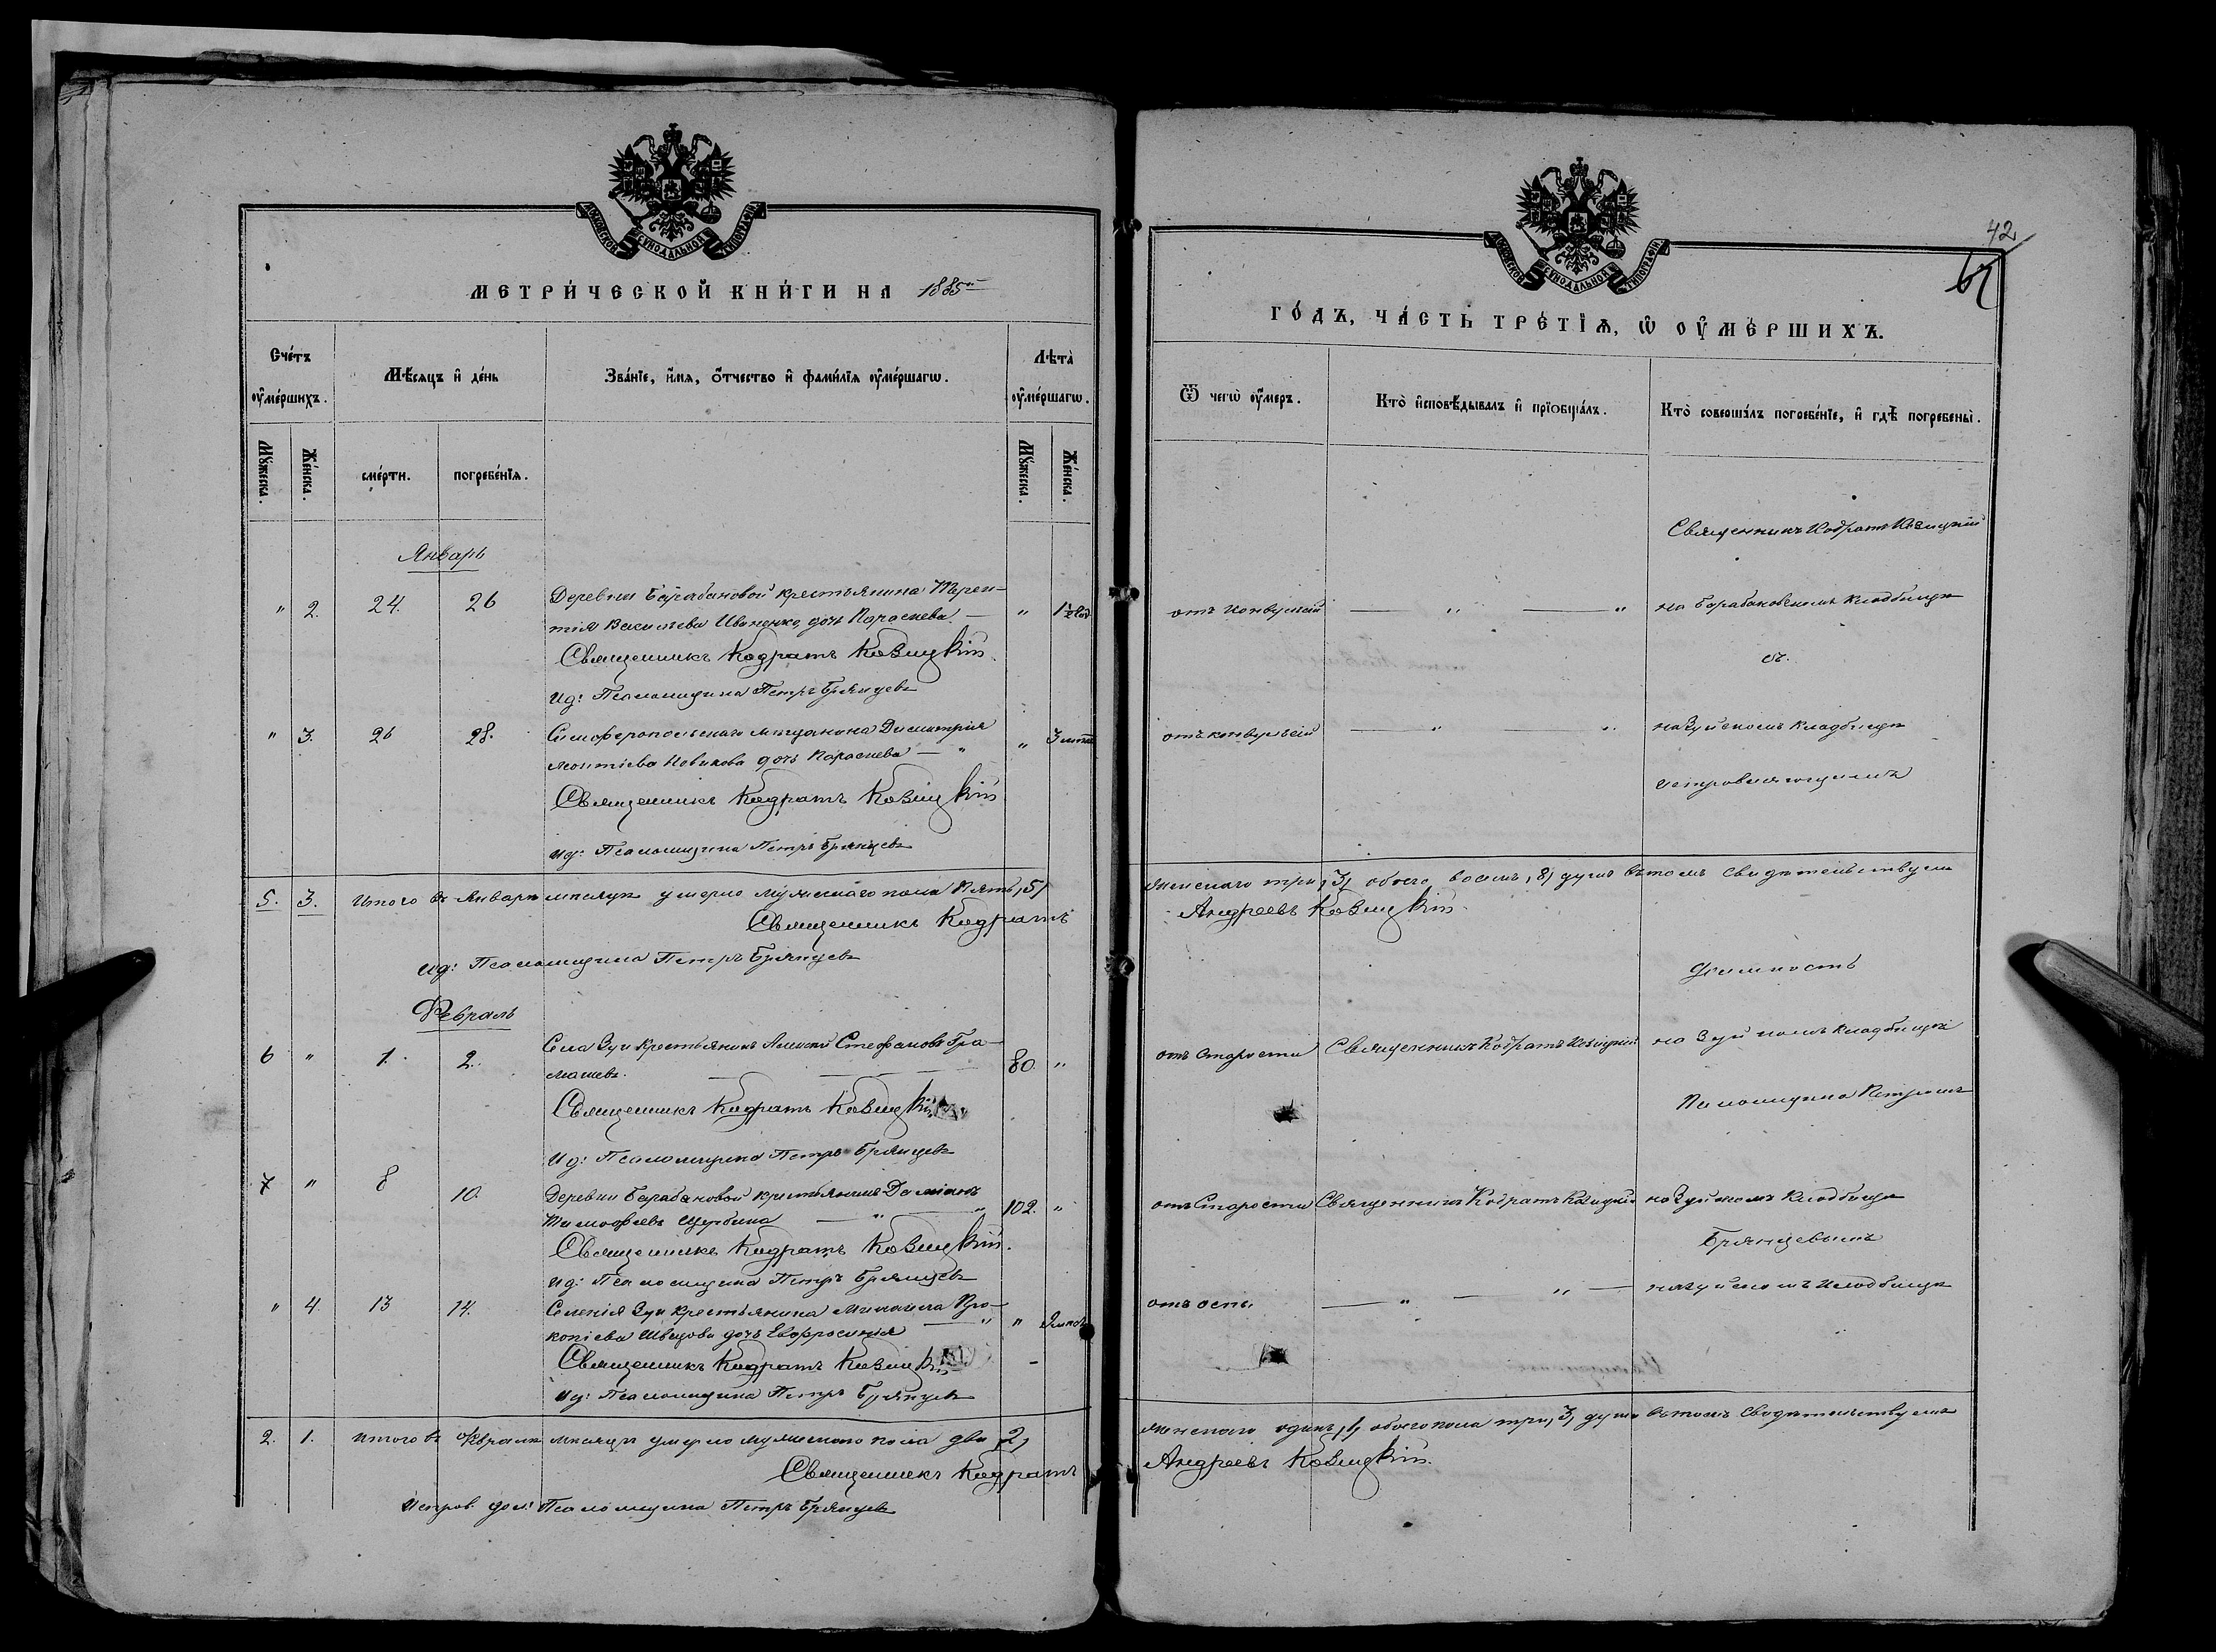 МОСКОВСКОЙ СѴНОДАЛЬНОЙ ТИПОГРАФІИ
МЕТРИ́ЧЕСКОЙ КНИ́ГИ НА 1885й
Сче́тъ ᲂу҆ме́ршихъ.
Мѣ́сяцъ и҆ де́нь
Зва́нїе, и҆́мѧ, ѻ҆́тчество и҆ фамѝлїѧ ᲂу҆ме́ршагѡ.
Лѣта̀ ᲂу҆ме́ршагѡ.
Мꙋ́жеска.
Же́нска.
сме́рти.
погребе́нїѧ.
Мꙋ́жеска.
Же́нска.
Январь
" 2. 24. 26 Деревни Барабановой крестьянина Терен-
тія Васильева Иваненко дочь Параскева — " 1½ год
Священникъ Кодратъ Козицкій
Ид: Псаломщика Петръ Брянцевъ
" 3. 26 28. Симферопольскаго мѣщанина Димитрія
Леонтіева Новикова дочь Параскева — " " 3 лѣтъ
Священникъ Кодратъ Козицкій
ид: Псаломщика Петръ Брянцевъ
5. 3. Итого въ Январѣ мѣсяцѣ умерло мужескаго пола Пять, 5,
Священникъ Кодратъ
ид: Псаломщика Петръ Брянцевъ
Февраль
6 " 1. 2. Села Зуи Крестьянинъ Стефановъ Гра-
машевъ. 80. "
Священникъ Кодратъ Козицкій
Ид: Псаломщика Петръ Брянцевъ
7 " 8 10. Деревни Барабановой крестьянинъ Доміанъ
Тимофеевъ Щербина — " — " 102. "
Священникъ Кодратъ Козицкій.
Ид: Псаломщика Петръ Брянцевъ
" 4. 13 14. Селенія Зуи Крестьянина Михаила Про-
копіева Швецова дочь Евфросинія — " "
Священникъ Кодратъ Козицкій
Ид: Псаломщика Петръ Брянцевъ
2. 1. Итого въ Февралѣ мѣсяцѣ умерло мужескаго пола два, 2,
Священникъ Кодратъ
Исправ. дол: Псаломщика Петръ Брянцевъ
42
МОСКОВСКОЙ СѴНОДАЛЬНОЙ ТИПОГРАФІИ
ГО́ДЪ, ЧА́СТЬ ТРЕ́ТЇѦ, Ѡ҆ ОУ҆МЕ́РШИХЪ.
Ѿ чегѡ̀ ᲂу҆́меръ.
Кто̀ и҆сповѣ́дывалъ и҆ прїѻбща́лъ.
Кто̀ соверша́лъ погребе́нїе, и҆ гдѣ̀ погребены̀.
Священникъ Кодратъ Козицкій
отъ конвульсій — " — " на Барабановскомъ кладбищѣ
съ.
отъ конвульсій — " — " на Зуйскомъ кладбищѣ
исправляющимъ
женскаго три, 3, обоего восемь, 8, душъ въ томъ свидѣтельствуемъ
Андреевъ Козицкій
должность
отъ старости Священникъ Кодратъ Козицкій на Зуйскомъ кладбищѣ
Псаломщика Петромъ
отъ Старости Священникъ Кодратъ Козицкій на Зуйскомъ кладбищѣ
Брянцевымъ
отъ оспы — " — " — на Зуйскомъ кладбищѣ
женскаго одинъ, 1, обоего пола три, 3, душъ въ томъ свидѣтельствуемъ
Андреевъ Козицкій.